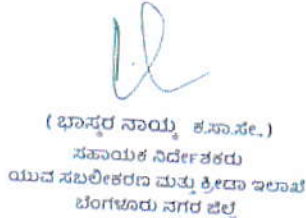 ( ಭಾಸ್ಕರ ನಾಯ್ಕ ಕ.ಸಾ.ಸೇ.,)
ಸಹಾಯಕ ನಿರ್ದೇಶಕರು
ಯುವ ಸಬಲೀಕರಣ ಮತ್ತು ಕ್ರೀಡಾ ಇಲಾಖೆ
ಬೆಂಗಳೂರು ನಗರ ಜಿಲ್ಲೆ